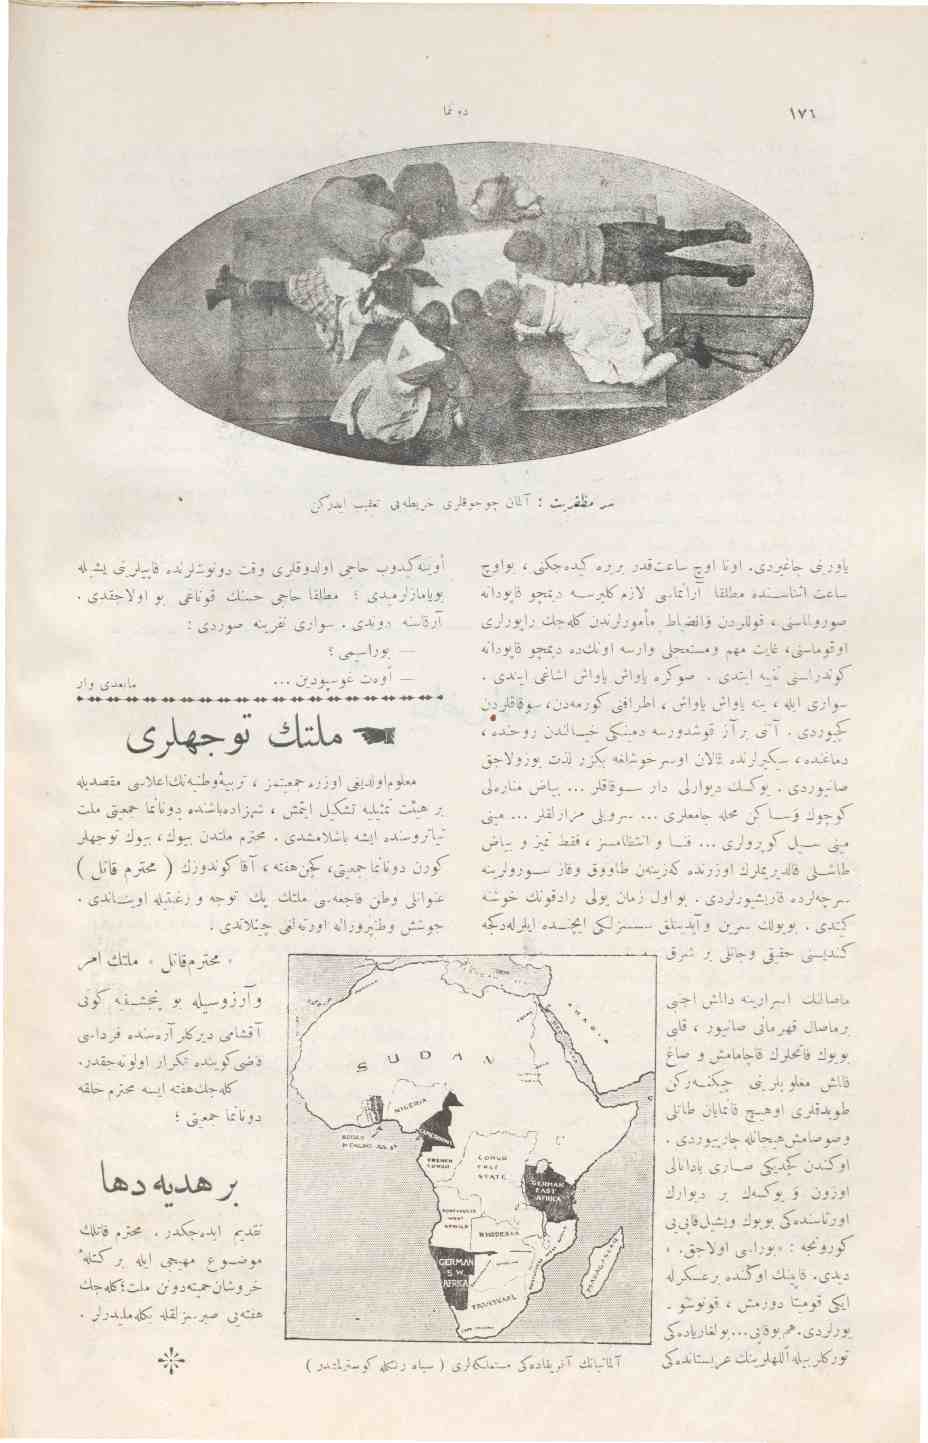 ١٧٦
دونما
سر مظفریت : آلمان چوجوقلری خریطه‌یی تعقیب ایدرکن
یاورینی چاغیردی. اونا اوچ ساعت قدر بریره کیده‌جکنی ، بواوچ
ساعت اثناسنده مطلقا آرانماسی لازم کلیرسه دیمجو قاپودانه
صورولماسنی ، قوللردن وانضباط مأمورلرندن کله‌جك راپورلری
اوقوماسنی، غایت مهم ومستعجلی وارسه اونك‌ده دیمجو قاپودانه
کوندرلسنی تنبیه ایتدی . صوکره یاواش یاواش اشاغی ایندی .
سواری ایله ، ینه یاواش یاواش ، اطرافنی کورمه‌دن، سوقاقلردن
کچیوردی . آتی بر آز قوشدورسه دمینکی خیالندن روحنده ،
دماغنده ، سیکیرلرنده قالان اوسرخوشلغه بکزر لذت بوزولاجق
صانیوردی . یوکسك دیوارلی دار سوقاقلر ... بیاض مناره‌لی
کوچوك وساکن محله جامعلری ... سرویلی مزارلقلر ... مینی
مینی سیل کوپرولری ... فنا و انتظامسز ، فقط تمیز و بیاض
طاشلی قالدیریملرك اوزرنده کزینه‌ن طاووق وقاز سورولرینه
سرچه‌لرده قاریشیورلردی . بو اول زمان یولی رادقونك خوشنه
کیتدی . بویولك سرین وآیدینلق سسسزلکی ایچنده ایلرله‌دکجه
کندیسنی حقیقی وجانلی بر شرق
ماصالنك اسرارینه دالش اجنبی
برماصال قهرمانی صانیور ، قلبی
بویوك فاتحلرك قاچامامش و صاغ
قالش مغلوبلرینی چیکنه‌رکن
طویدقلری اوهیچ قانمایان طاتلی
وصوصامش هیجانله چارپیوردی .
اوکندن کچدیکی صاری بادانالی
اوزون و یوکسك بر دیوارك
اورتاسنده‌کی بویوك ویشیل قاپی‌یی
کورونجه : «بوراسی اولاجق. »
دیدی. قاپینك اوکنده برعسکرله
ایکی قومیتا دورمش ، قونوشو .
یورلردی. هم بوقاپی... بولغاریاده‌کی
تورکلر بیله اللهلرینك عربستانده‌کی
أوینه کیدوب حاجی اولدوقلری وقت دونوشلرنده قاپیلرینی یشیله
بویامازلرمیدی ؛ مطلقا حاجی حسنك قوناغی بو اولاجقدی .
آرقاسنه دوندی . سواری نفرینه صوردی :
— بوراسیمی ؟
— اَوه‌ت غوسپودین ...
مابعدی وار
ملتك توجهلری
معلوم اولدیغی اوزره جمعیتمز ، تربیۀ وطنیه‌نك اعلاسی مقصدیله
بر هیئت تمثیلیه تشکیل ایتمش ، شهزاده‌باشنده دونانما جمعیتی ملت
تیاتروسنده ایشه باشلامشدی . محترم ملتدن بیوك ، بیوك توجهلر
کورن دونانما جمعیتی، کچن هفته ، آقا کوندوزك ( محترم قاتل )
عنوانلی وطن فاجعه‌سی ملتك پك توجه و رغبتیله اوینـاندی .
جوشش وطنپرورانه اورته‌لغی چینلاتدی .
« محترم قاتل » ملتك امر
وآرزوسیله بو پنجشنبه کونی
آقشامی دیرکلر آره‌سنده فرداسی
قاضی کوینده تکرار اولونه‌جقدر.
کله‌جك هفته ایسه محترم خلقه
دونانما جمعیتی ؛
بر هدیه دها
تقدیم ایده‌جکدر . محترم قاتلك
موضوع مهیجی ایله بر کتلۀ
خروشان حمیته دونن ملت؛ کله‌جك
هفته‌یی صبرسزلقله بکله‌ملیدرلر .
SUDAN
ARABIA
NIGERIA
CAMEROONS
FRENCH CONGO
CONGO FREE STATE
GERMAN EAST AFRICA
PORTUGUESE WEST AFRICA
RHODESIA
GERMAN S.W. AFRICA
TRANSVAAL
MADAGASCAR
آلمانیانك آفریقاده‌کی مستملکه‌لری ( سیاه رنکله کوستریلمشدر )